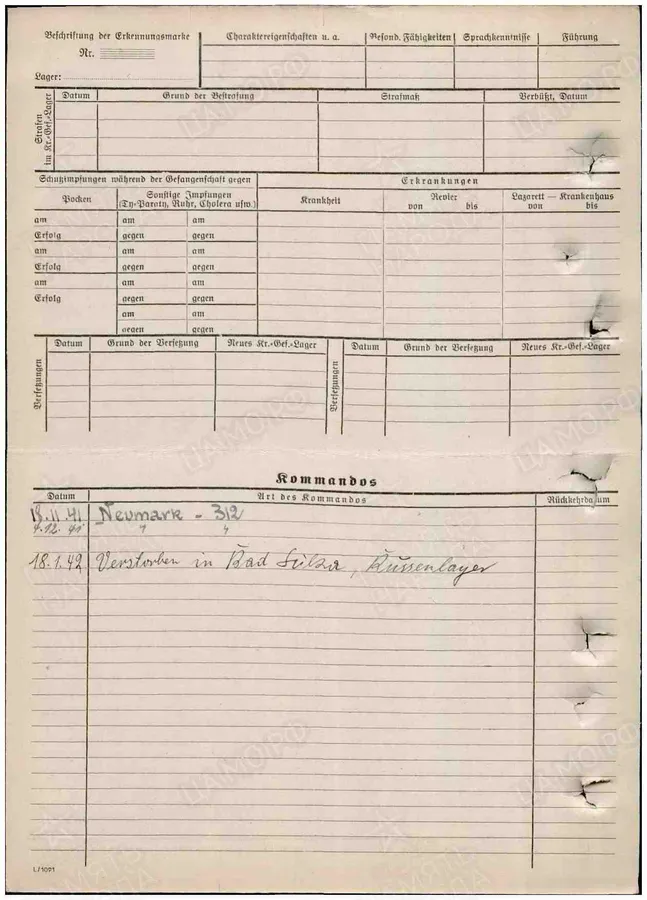 Beschriftung der Erkennungsmarke
Nr.
Lager:
Charaktereigenschaften u. a.
Besond. Fähigkeiten
Sprachkenntnisse
Führung
Strafen im Kr.-Gef.-Lager
Datum
Grund der Bestrafung
Strafmaß
Verbüßt, Datum
Schutzimpfungen während der Gefangenschaft gegen
Erkrankungen
Pocken
Sonstige Impfungen
(Ty-Paraty, Ruhr, Cholera usw.)
Krankheit
Revier
von bis
Lazarett — Krankenhaus
von bis
am am am
Erfolg gegen gegen
am am am
Erfolg gegen gegen
am am am
Erfolg gegen gegen
am am
gegen gegen
Versetzungen
Datum
Grund der Versetzung
Neues Kr.-Gef.-Lager
Versetzungen
Datum
Grund der Versetzung
Neues Kr.-Gef.-Lager
Kommandos
Datum
Art des Kommandos
Rückkehrdatum
18.11.41 Neumark - 312
4.12.41 " "
18.1.42 Verstorben in Bad Sulza, Russenlager
L/1091
ЦАМО РФ
ПАМЯТЬ